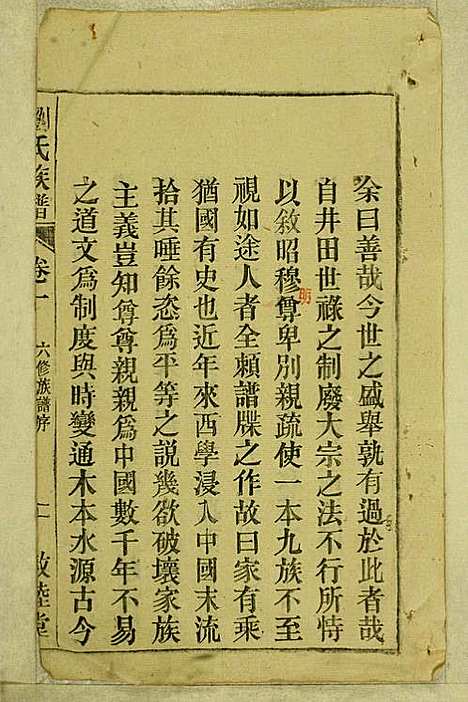 余曰善哉今世之盛舉孰有過於此者哉
自井田世祿之制廢大宗之法不行所恃
以敘昭穆尊卑別親疏使一本九族不至
視如途人者全頼譜牒之作故曰家有乘
猶國有史也近年來西學浸入中國末流
拾其唾餘恣爲平等之説幾欲破壞家族
主義豈知尊尊親親爲中國數千年不易
之道文爲制度與時變通木本水源古今
劉氏族譜 卷一 六修族譜序 二 敦睦堂